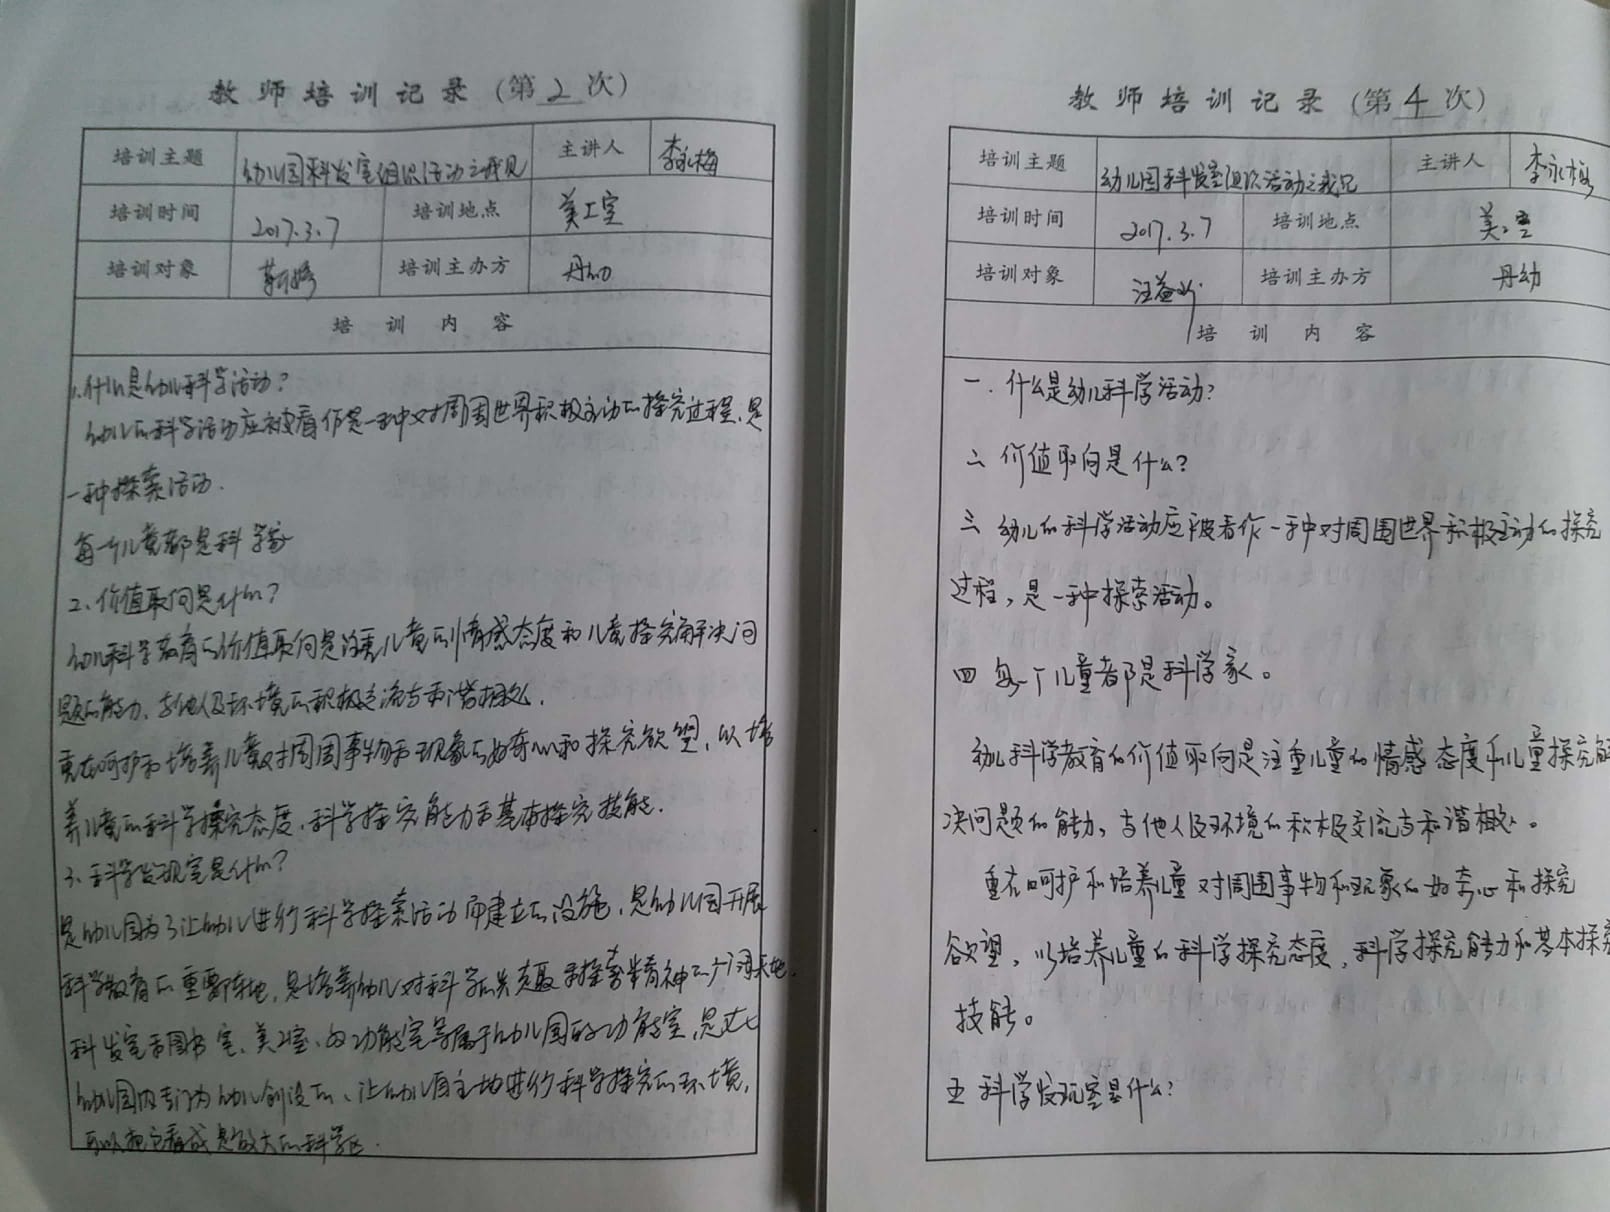 教师培训记录(第2次)
培训主题 幼儿园科发室组织活动之我见 主讲人 李永梅
培训时间 2017.3.7 培训地点 美工室
培训对象 培训主办方 丹幼
培训内容
1.什么是幼儿科学活动?
幼儿的科学活动应被看作是一种对周围世界积极主动的探究过程,是
一种探索活动.
每个儿童都是科学家
2、价值取向是什么?
幼儿科学教育的价值取向是注重儿童的情感态度和儿童探究解决问
题的能力、与他人及环境的积极交流与和谐相处.
重在呵护和培养儿童对周围事物和现象的好奇心和探究欲望,以培
养儿童的科学探究态度,科学探究能力和基本探究技能.
3、科学发现室是什么?
是幼儿园为了让幼儿进行科学探索活动而建立的设施,是幼儿园开展
科学教育的重要阵地,是培养幼儿对科学的兴趣和探索精神的一个阵地.
科发室和图书室、美工室、多功能室等属于幼儿园的功能室,是
幼儿园内专门为幼儿创设的、让幼儿自主地进行科学探究的环境,
可以把它看成是放大的科学区.
教师培训记录(第4次)
培训主题 幼儿园科发室组织活动之我见 主讲人 李永梅
培训时间 2017.3.7 培训地点 美工室
培训对象 汪益 培训主办方 丹幼
培训内容
一.什么是幼儿科学活动?
二 价值取向是什么?
三 幼儿的科学活动应被看作一种对周围世界积极主动的探究
过程,是一种探索活动。
四 每个儿童都是科学家。
幼儿科学教育的价值取向是注重儿童的情感态度和儿童探究解
决问题的能力,与他人及环境的积极交流与和谐相处。
重在呵护和培养儿童对周围事物和现象的好奇心和探究
欲望,以培养儿童的科学探究态度,科学探究能力和基本探究
技能。
五 科学发现室是什么?